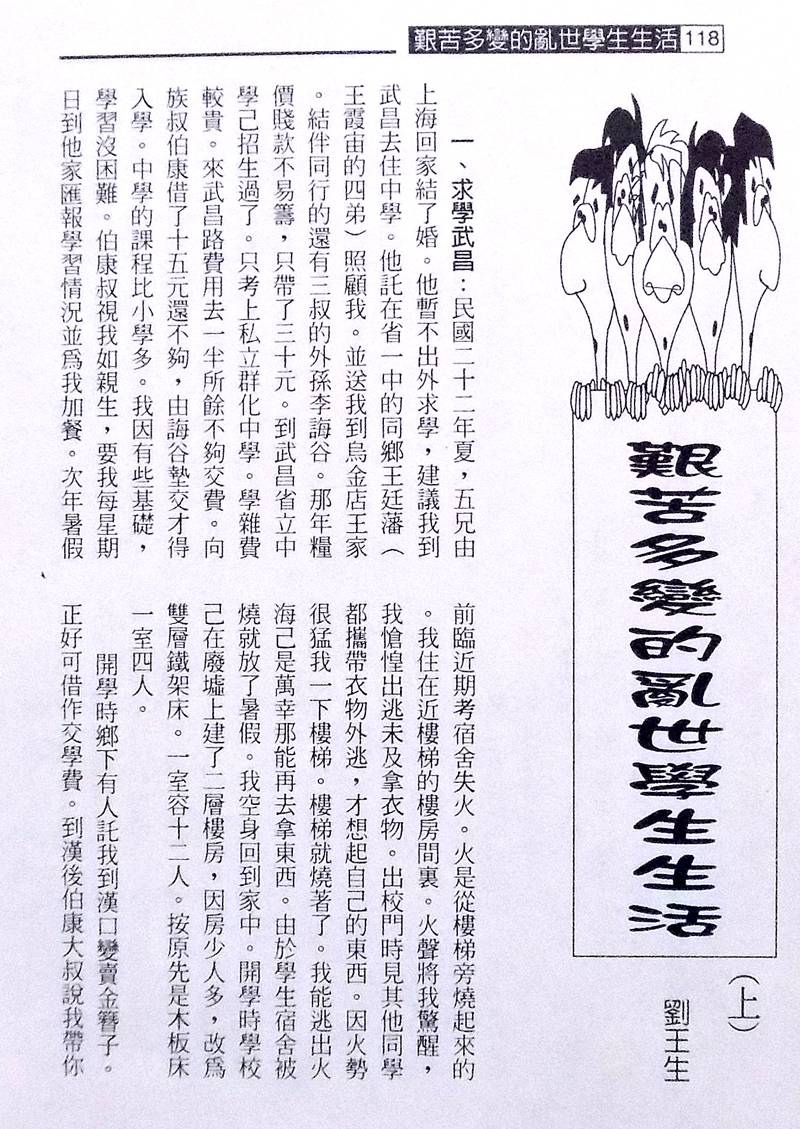 艱苦多變的亂世學生生活 118
艱苦多變的亂世學生生活
(上)
劉王生
一、求學武昌：民國二十二年夏，五兄由
上海回家結了婚。他暫不出外求學，建議我到
武昌去住中學。他託在省一中的同鄉王廷藩（
王霞宙的四弟）照顧我。並送我到烏金店王家
。結伴同行的還有三叔的外孫李誨谷。那年糧
價賤款不易籌，只帶了三十元。到武昌省立中
學己招生過了。只考上私立群化中學。學雜費
較貴。來武昌路費用去一半所餘不夠交費。向
族叔伯康借了十五元還不夠，由誨谷墊交才得
入學。中學的課程比小學多。我因有些基礎，
學習沒困難。伯康叔視我如親生，要我每星期
日到他家匯報學習情況並爲我加餐。次年暑假
前臨近期考宿舍失火。火是從樓梯旁燒起來的
。我住在近樓梯的樓房間裏。火聲將我驚醒，
我愴惶出逃未及拿衣物。出校門時見其他同學
都攜帶衣物外逃，才想起自己的東西。因火勢
很猛我一下樓梯。樓梯就燒著了。我能逃出火
海己是萬幸那能再去拿東西。由於學生宿舍被
燒就放了暑假。我空身回到家中。開學時學校
己在廢墟上建了二層樓房，因房少人多，改爲
雙層鐵架床。一室容十二人。按原先是木板床
一室四人。
開學時鄉下有人託我到漢口變賣金簪子。
正好可借作交學費。到漢後伯康大叔說我帶你